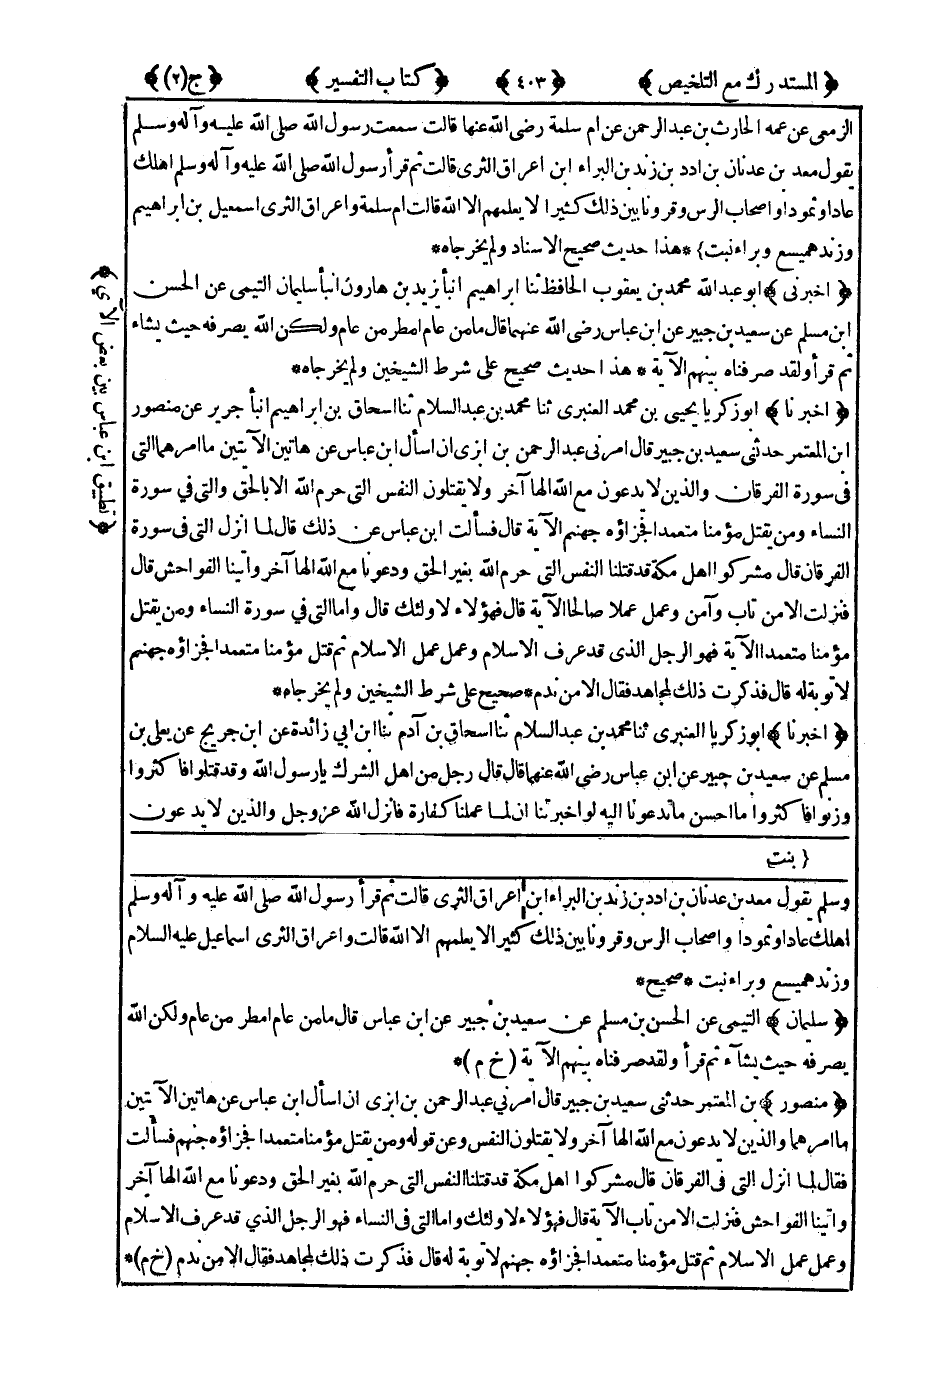 ﴿ المستدرك مع التلخيص ﴾ ﴿ ٤٠٣ ﴾ ﴿ كتاب التفسير ﴾ ﴿ ج (٢) ﴾
الزمعى عن عمه الحارث بن عبد الرحمن عن ام سلمة رضى الله عنها قالت سمعت رسول الله صلى الله عليه وآله وسلم
يقول معد بن عدنان بن ادد بن زند بن البراء ابن اعراق الثرى قالت ثم قرأ رسول الله صلى الله عليه وآله وسلم اهلك
عادا وثمودا واصحاب الرس وقرونا بين ذلك كثيرا لا يعلمهم الا الله قالت ام سلمة واعراق الثرى اسمعيل بن ابراهيم
وزند هميسع وبراء نبت} *هذا حديث صحيح الاسناد ولم يخرجاه*
﴿ اخبرنى ﴾ ابو عبد الله محمد بن يعقوب الحافظ ثنا ابراهيم انبأ يزيد بن هارون انبأ سليمان التيمى عن الحسن
ابن مسلم عن سعيد بن جبير عن ابن عباس رضى الله عنهما قال ما من عام امطر من عام ولكن الله يصرفه حيث يشاء
ثم قرأ ولقد صرفناه بينهم الآية * هذا حديث صحيح على شرط الشيخين ولم يخرجاه*
﴿ اخبرنا ﴾ ابو زكريا يحيى بن محمد العنبرى ثنا محمد بن عبد السلام ثنا اسحاق بن ابراهيم انبأ جرير عن منصور
ابن المعتمر حدثنى سعيد بن جبير قال امرنى عبد الرحمن بن ابزى ان اسأل ابن عباس عن هاتين الآيتين ما امرهما التى
فى سورة الفرقان والذين لا يدعون مع الله الها آخر ولا يقتلون النفس التى حرم الله الا بالحق والتى في سورة
النساء ومن يقتل مؤمنا متعمدا فجزاؤه جهنم الآية قال فسألت ابن عباس عن ذلك قال لما انزل التى فى سورة
الفرقان قال مشركوا اهل مكة قد قتلنا النفس التى حرم الله بغير الحق ودعونا مع الله الها آخر وأتينا الفواحش قال
فنزلت الا من تاب وآمن وعمل عملا صالحا الآية قال فهؤلاء لاولئك قال واما التى في سورة النساء ومن يقتل
مؤمنا متعمدا الآية فهو الرجل الذى قد عرف الاسلام وعمل عمل الاسلام ثم قتل مؤمنا متعمدا فجزاؤه جهنم
لا توبة له قال فذكرت ذلك لمجاهد فقال الا من ندم*صحيح على شرط الشيخين ولم يخرجاه*
﴿ اخبرنا ﴾ ابو زكريا العنبرى ثنا محمد بن عبد السلام ثنا اسحاق بن آدم ثنا ابن ابي زائدة عن ابن جريج عن يعلى بن
مسلم عن سعيد بن جبير عن ابن عباس رضى الله عنهما قال قال رجل من اهل الشرك يا رسول الله وقد قتلوا فاكثروا
وزنوا فاكثروا ما احسن ما تدعونا اليه لو اخبرتنا ان لما عملنا كفارة فانزل الله عز وجل والذين لا يدعون
﴿ تطبيق ابن عباس بين بعض الآي ﴾
{ بنت
وسلم يقول معد بن عدنان بن ادد بن زند بن البراء ابن اعراق الثرى قالت ثم قرأ رسول الله صلى الله عليه وآله وسلم
اهلك عادا وثمودا واصحاب الرس وقرونا بين ذلك كثيرا لا يعلمهم الا الله قالت واعراق الثرى اسماعيل عليه السلام
وزند هميسع وبراء نبت *صحيح*
﴿ سليمان ﴾ التيمى عن الحسن بن مسلم عن سعيد بن جبير عن ابن عباس قال ما من عام امطر من عام ولكن الله
يصرفه حيث يشآء ثم قرأ ولقد صرفناه بينهم الآية (خ م)*
﴿ منصور ﴾ بن المعتمر حدثنى سعيد بن جبير قال امرني عبد الرحمن بن ابزى ان اسأل ابن عباس عن هاتين الآيتين
ما امرهما والذين لا يدعون مع الله الها آخر ولا يقتلون النفس وعن قوله ومن يقتل مؤمنا متعمدا فجزاؤه جهنم فسألت
فقال لما انزل التى فى الفرقان قال مشركوا اهل مكة قد قتلنا النفس التى حرم الله بغير الحق ودعونا مع الله الها آخر
واتينا الفواحش فنزلت الا من تاب الآية قال فهؤلاء لاولئك واما التى فى النساء فهو الرجل الذي قد عرف الاسلام
وعمل عمل الاسلام ثم قتل مؤمنا متعمدا فجزاؤه جهنم لا توبة له قال فذكرت ذلك لمجاهد فقال الا من ندم (خ م)*